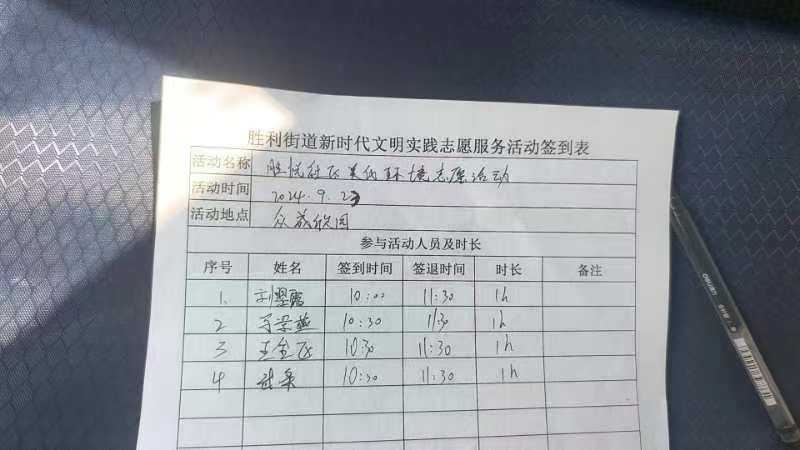 胜利街道新时代文明实践志愿服务活动签到表
活动名称 胜悦社区美化环境志愿活动
活动时间 2024.9.23
活动地点 众益欣园
参与活动人员及时长
序号 姓名 签到时间 签退时间 时长 备注
1. 10:00 11:30 1h
2 10:30 11:30 1h
3 10:30 11:30 1h
4 10:30 11:30 1h